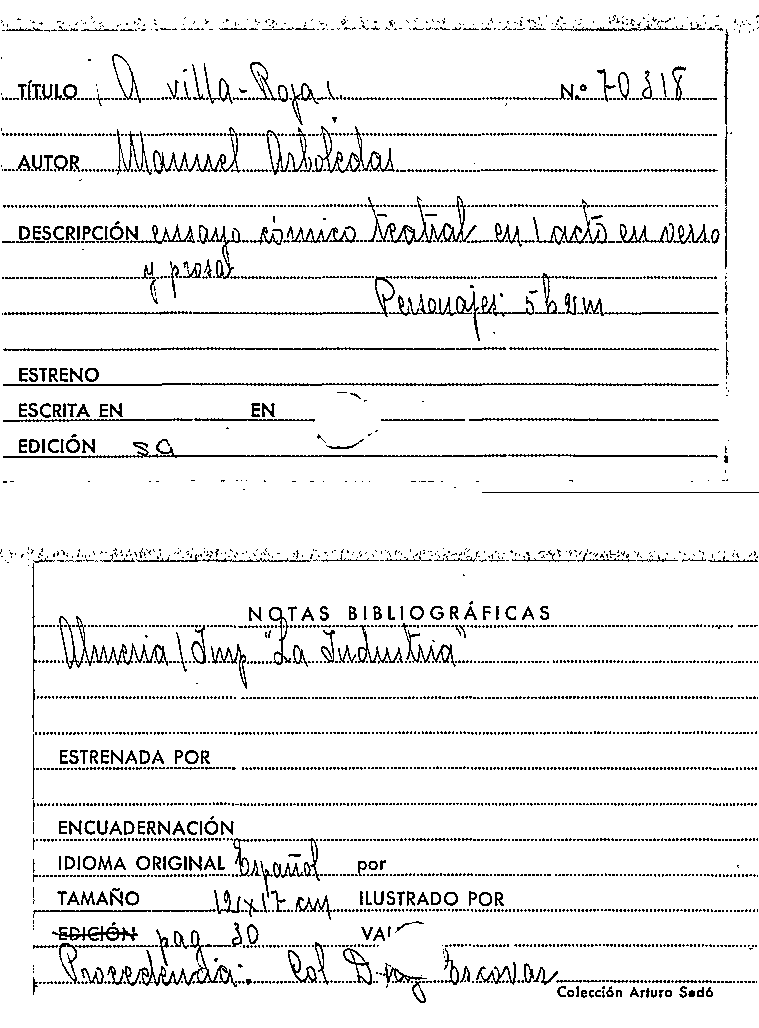 TÍTULO ¡A villa-Roja!. N.º 70318
AUTOR Manuel Arboledas
DESCRIPCIÓN ensayo cómico teatral en 1 acto en verso
y prosa
Personajes: 5h 2m
ESTRENO
ESCRITA EN EN
EDICIÓN sa
NOTAS BIBLIOGRÁFICAS
Almeria / Imp "La Industria"
ESTRENADA POR
ENCUADERNACIÓN
IDIOMA ORIGINAL Español por
TAMAÑO 12x17 cm ILUSTRADO POR
EDICIÓN pag 30
Procedencia: Col Diaz Escovar
Colección Arturo Sedó